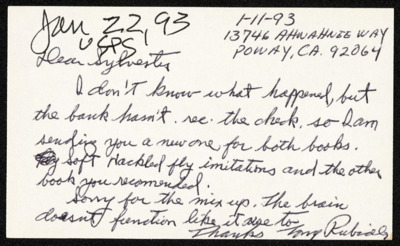 Jan 22, 93
UPS
1-11-93
13746 AHWAHNEE WAY
POWAY, CA. 92064
Dear Sylvester
I don't know what happened, but
the bank hasn't. rec. the check, so I am
sending you a new one for both books.
soft Hackled fly imitations and the other
book you recomended.
Sorry for the mix up. The brain
doesnt function like it use to.
Thanks Tony